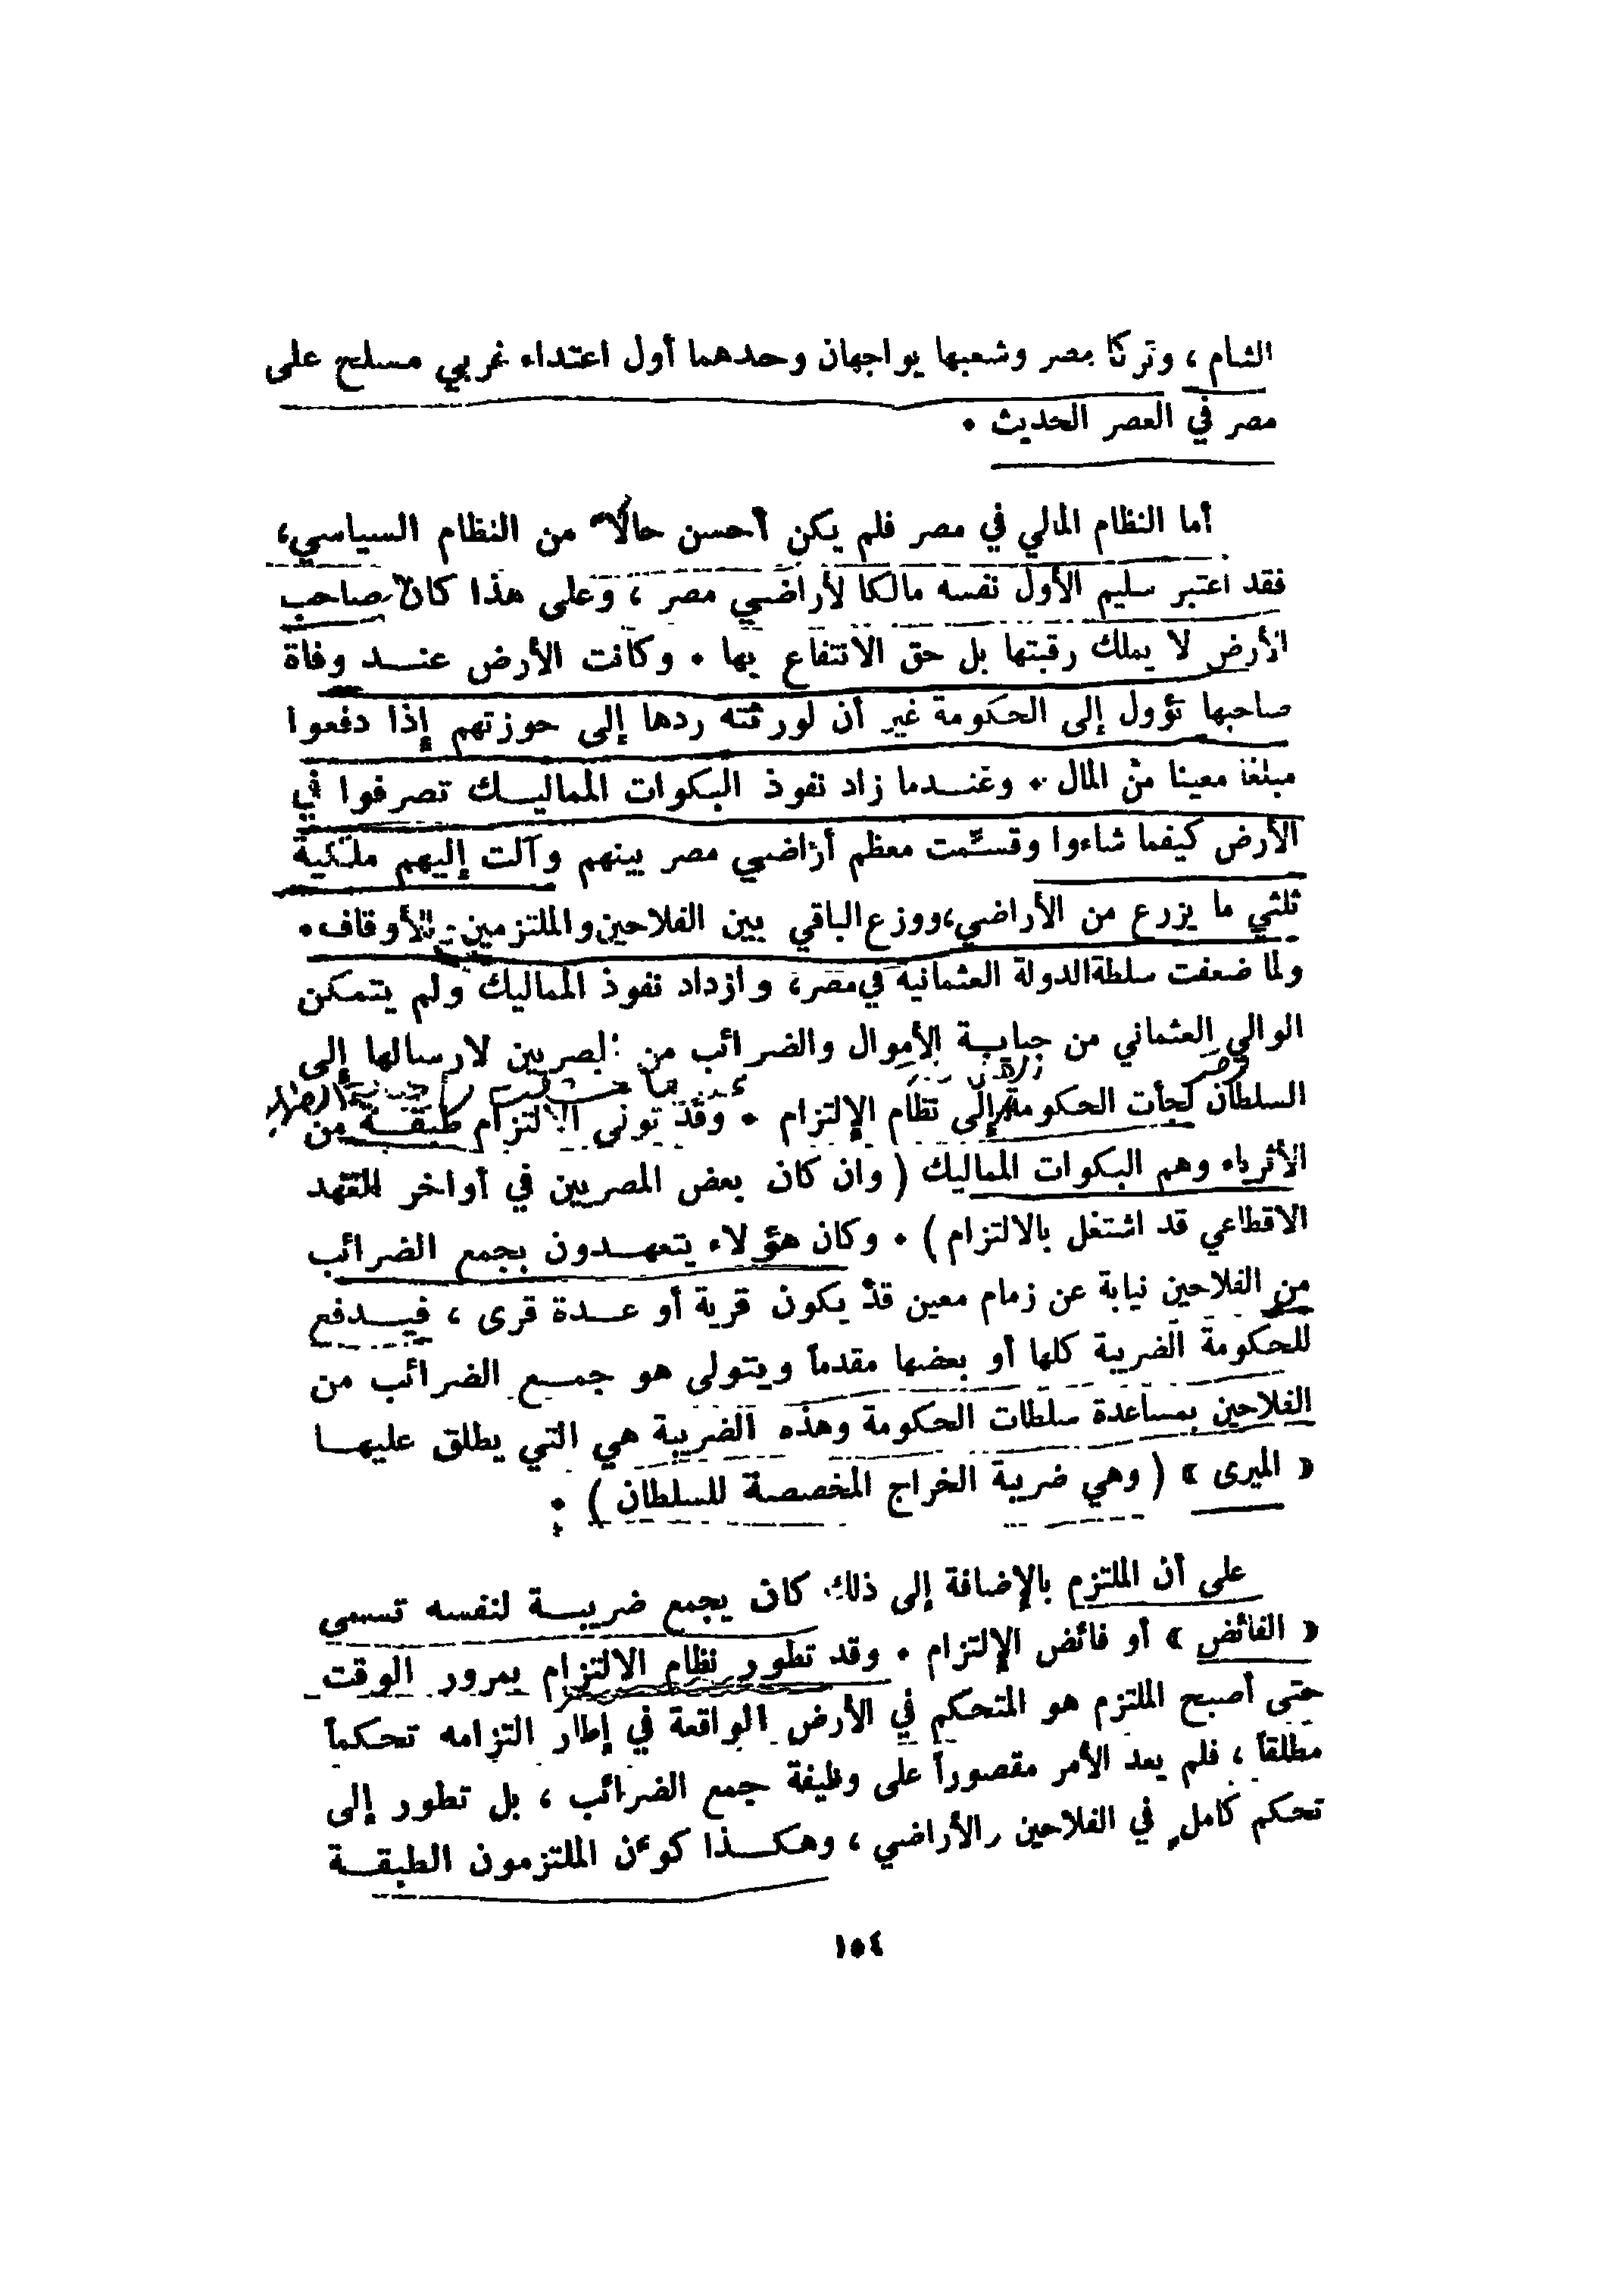 الشام ، وتركا مصر وشعبها يواجهان وحدهما أول اعتداء غربي مسلح على
مصر في العصر الحديث .
أما النظام المالي في مصر فلم يكن أحسن حالاً من النظام السياسي،
فقد اعتبر سليم الأول نفسه مالكا لأراضي مصر ، وعلى هذا كان صاحب
الأرض لا يملك رقبتها بل حق الانتفاع بها . وكانت الأرض عنــد وفاة
صاحبها تؤول إلى الحكومة غير أن لورثته ردها إلى حوزتهم إذا دفعوا
مبلغا معينا من المال . وعنــدما زاد نفوذ البكوات المماليــك تصرفوا في
الأرض كيفما شاءوا وقسمت معظم أراضي مصر بينهم وآلت إليهم ملكية
ثلثي ما يزرع من الأراضي،ووزع الباقي بين الفلاحين والملتزمين والأوقاف.
ولما ضعفت سلطة الدولة العثمانية في مصر، وازداد نفوذ المماليك ولم يتمكن
الوالي العثماني من جبايــة الأموال والضرائب من المصريين لارسالها إلى
السلطان لجأت الحكومة إلى نظام الإلتزام . وقد تولى الالتزام طبقــة من
الأثرياء وهم البكوات المماليك ( وان كان بعض المصريين في أواخر العهد
الاقطاعي قد اشتغل بالالتزام ) . وكان هؤلاء يتعهــدون بجمع الضرائب
من الفلاحين نيابة عن زمام معين قد يكون قرية أو عــدة قرى ، فيــدفع
للحكومة الضريبة كلها أو بعضها مقدماً ويتولى هو جمــع الضرائب من
الفلاحين بمساعدة سلطات الحكومة وهذه الضريبة هي التي يطلق عليهــا
« الميرى » ( وهي ضريبة الخراج المخصصة للسلطان ) .
على أن الملتزم بالإضافة إلى ذلك كان يجمع ضريبــة لنفسه تسمى
« الفائض » أو فائض الإلتزام . وقد تطور نظام الالتزام بمرور الوقت
حتى أصبح الملتزم هو المتحكم في الأرض الواقعة في إطار التزامه تحكماً
مطلقاً ، فلم يعد الأمر مقصوراً على وظيفة جمع الضرائب ، بل تطور إلى
تحكم كامل في الفلاحين والأراضي ، وهكــذا كون الملتزمون الطبقــة
١٥٤